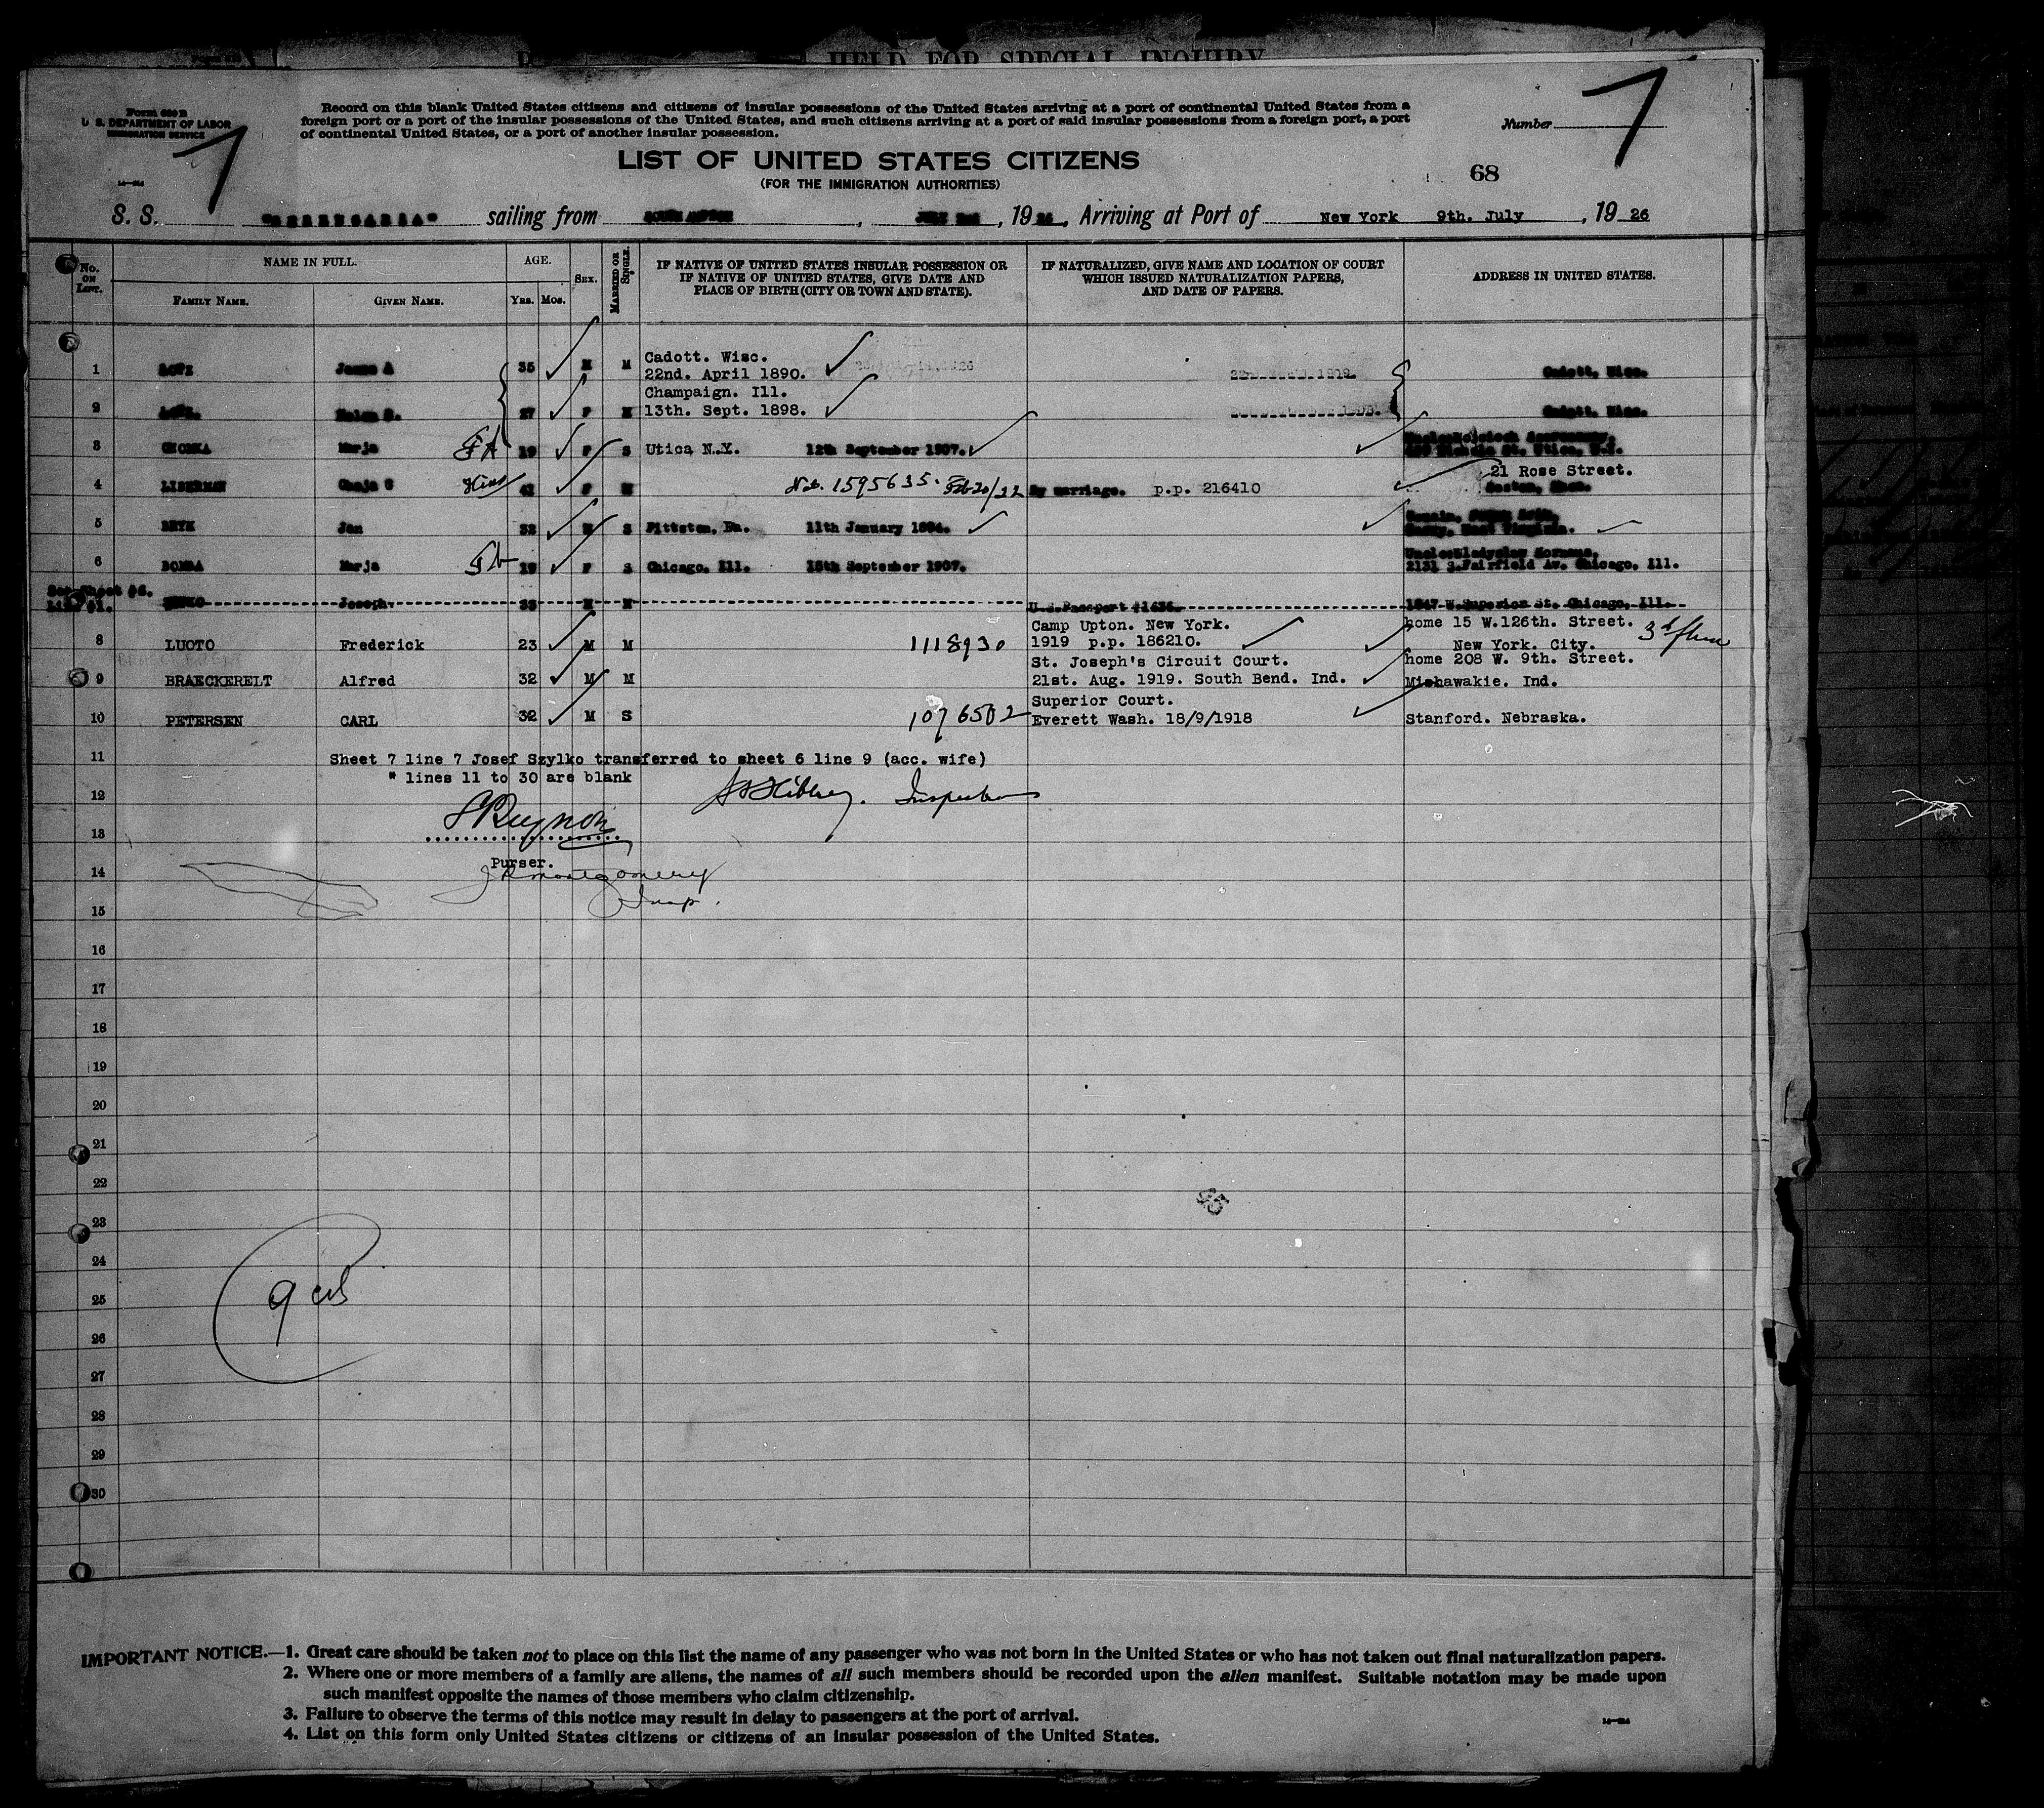 HELD FOR SPECIAL INQUIRY
Form 630 B
U. S. DEPARTMENT OF LABOR
IMMIGRATION SERVICE
7
Record on this blank United States citizens and citizens of insular possessions of the United States arriving at a port of continental United States from a
foreign port or a port of the insular possessions of the United States, and such citizens arriving at a port of said insular possessions from a foreign port, a port
of continental United States, or a port of another insular possession.
Number 7
LIST OF UNITED STATES CITIZENS
(FOR THE IMMIGRATION AUTHORITIES)
68
S. S. "BERENGARIA" sailing from SOUTHAMPTON, JULY, 1926, Arriving at Port of New York 9th. July, 1926
No. ON LIST.
NAME IN FULL.
FAMILY NAME. GIVEN NAME.
AGE.
YRS. MOS.
SEX.
MARRIED OR SINGLE.
IF NATIVE OF UNITED STATES INSULAR POSSESSION OR
IF NATIVE OF UNITED STATES, GIVE DATE AND
PLACE OF BIRTH (CITY OR TOWN AND STATE).
IF NATURALIZED, GIVE NAME AND LOCATION OF COURT
WHICH ISSUED NATURALIZATION PAPERS,
AND DATE OF PAPERS.
ADDRESS IN UNITED STATES.
Cadott. Wisc.
1 James A 35 M M 22nd. April 1890. Cadott, Wisc.
Champaign. Ill.
2 Helen 27 F M 13th. Sept. 1898. Cadott, Wisc.
3 Marja 19 F S Utica N.Y. 12th September 1907. Utica, N.Y.
21 Rose Street.
4 LIBERMAN Chaja F M Nat. 1595635. Feb 20/22 By marriage. p.p. 216410 Boston, Mass.
5 BRYK Jan 32 M S Pittston, Pa. 11th January 1894. West Virginia.
6 Marja 19 F S Chicago, Ill. 15th September 1907. 2131 S.Fairfield Av. Chicago, Ill.
See Sheet #6.
Line #1. Joseph. 33 M M U.S.Passport 1847 W.Superior St. Chicago, Ill.
Camp Upton. New York. home 15 W.126th. Street.
8 LUOTO Frederick 23 M M 1118930 1919 p.p. 186210. New York. City.
St. Joseph's Circuit Court. home 208 W. 9th. Street.
9 BRAECKERELT Alfred 32 M M 21st. Aug. 1919. South Bend. Ind. Mishawakie. Ind.
Superior Court.
10 PETERSEN CARL 32 M S 1076502 Everett Wash. 18/9/1918 Stanford. Nebraska.
11 Sheet 7 line 7 Josef Szylko transferred to sheet 6 line 9 (acc. wife)
" lines 11 to 30 are blank
12 Inspector
13
Purser.
14 J R Montgomery
15 Insp.
16
17
18
19
20
21
22
23
24
25 9 
26
27
28
29
30
IMPORTANT NOTICE.—1. Great care should be taken not to place on this list the name of any passenger who was not born in the United States or who has not taken out final naturalization papers.
2. Where one or more members of a family are aliens, the names of all such members should be recorded upon the alien manifest. Suitable notation may be made upon
such manifest opposite the names of those members who claim citizenship.
3. Failure to observe the terms of this notice may result in delay to passengers at the port of arrival.
4. List on this form only United States citizens or citizens of an insular possession of the United States.